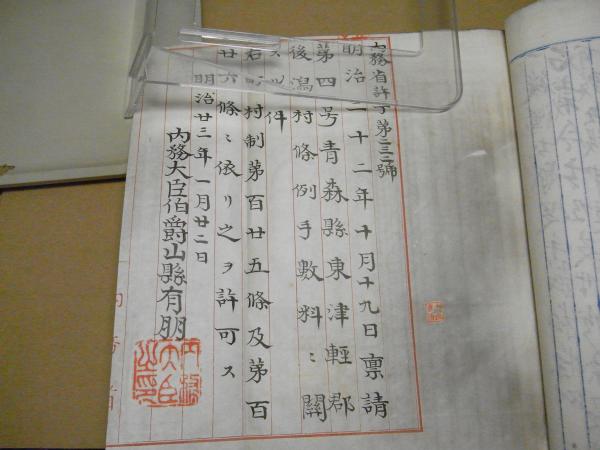 内務省許青第三三號
明治二十二年十月十九日稟請
第四号青森縣東津輕郡
後潟村條例手數料ニ關
スル件
右町村制第百廿五條及第百
廿六條ニ依リ之ヲ許可ス
明治廿三年一月廿二日
内務大臣伯爵山縣有朋
内務大臣之印
内務省